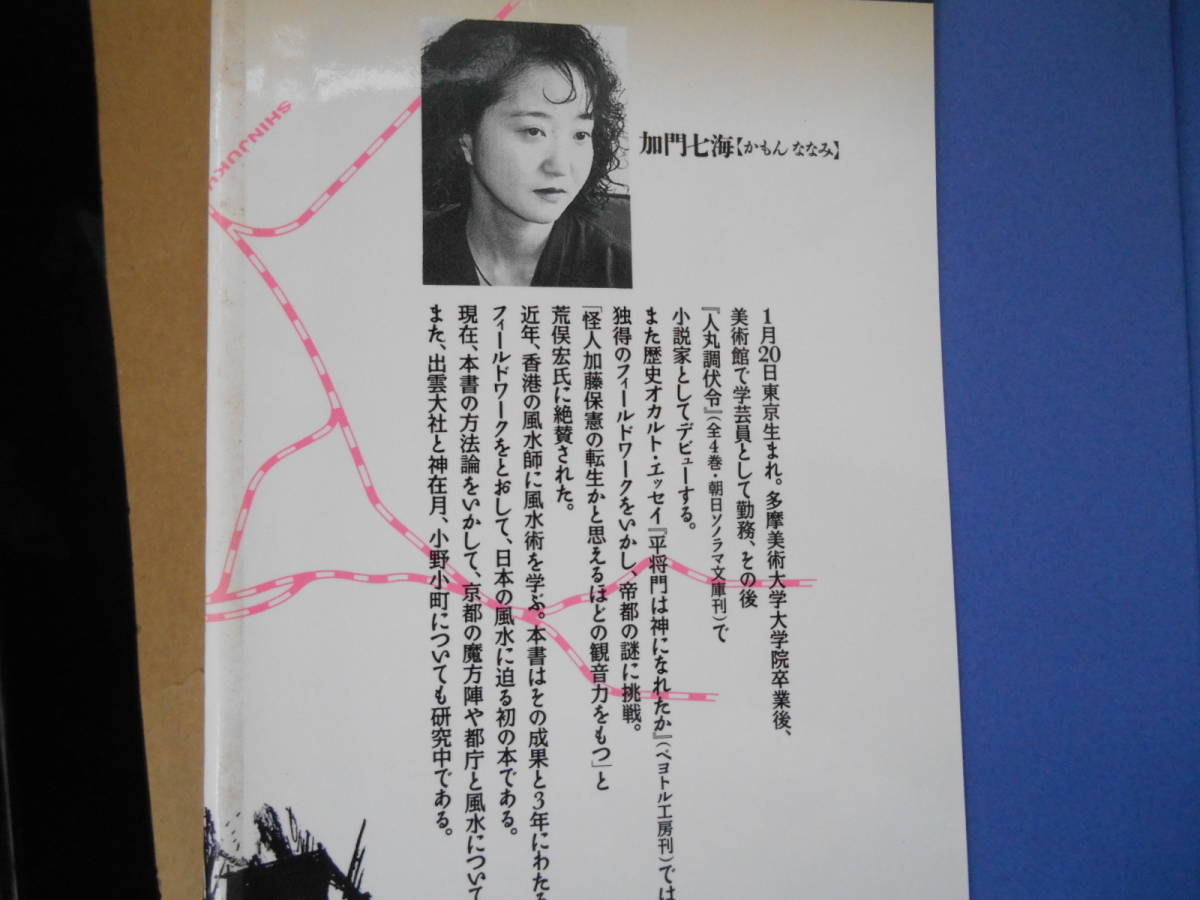 SHINJUKU
加門七海【かもん ななみ】
1月20日東京生まれ。多摩美術大学大学院卒業後、
美術館で学芸員として勤務、その後
『人丸調伏令』(全4巻・朝日ソノラマ文庫刊)で
小説家としてデビューする。
また歴史オカルト・エッセイ『平将門は神になれたか』(ペヨトル工房刊)では
独得のフィールドワークをいかし、帝都の謎に挑戦。
「怪人加藤保憲の転生かと思えるほどの観音力をもつ」と
荒俣宏氏に絶賛された。
近年、香港の風水師に風水術を学ぶ。本書はその成果と3年にわたる
フィールドワークをとおして、日本の風水に迫る初の本である。
現在、本書の方法論をいかして、京都の魔方陣や都庁と風水について
また、出雲大社と神在月、小野小町についても研究中である。